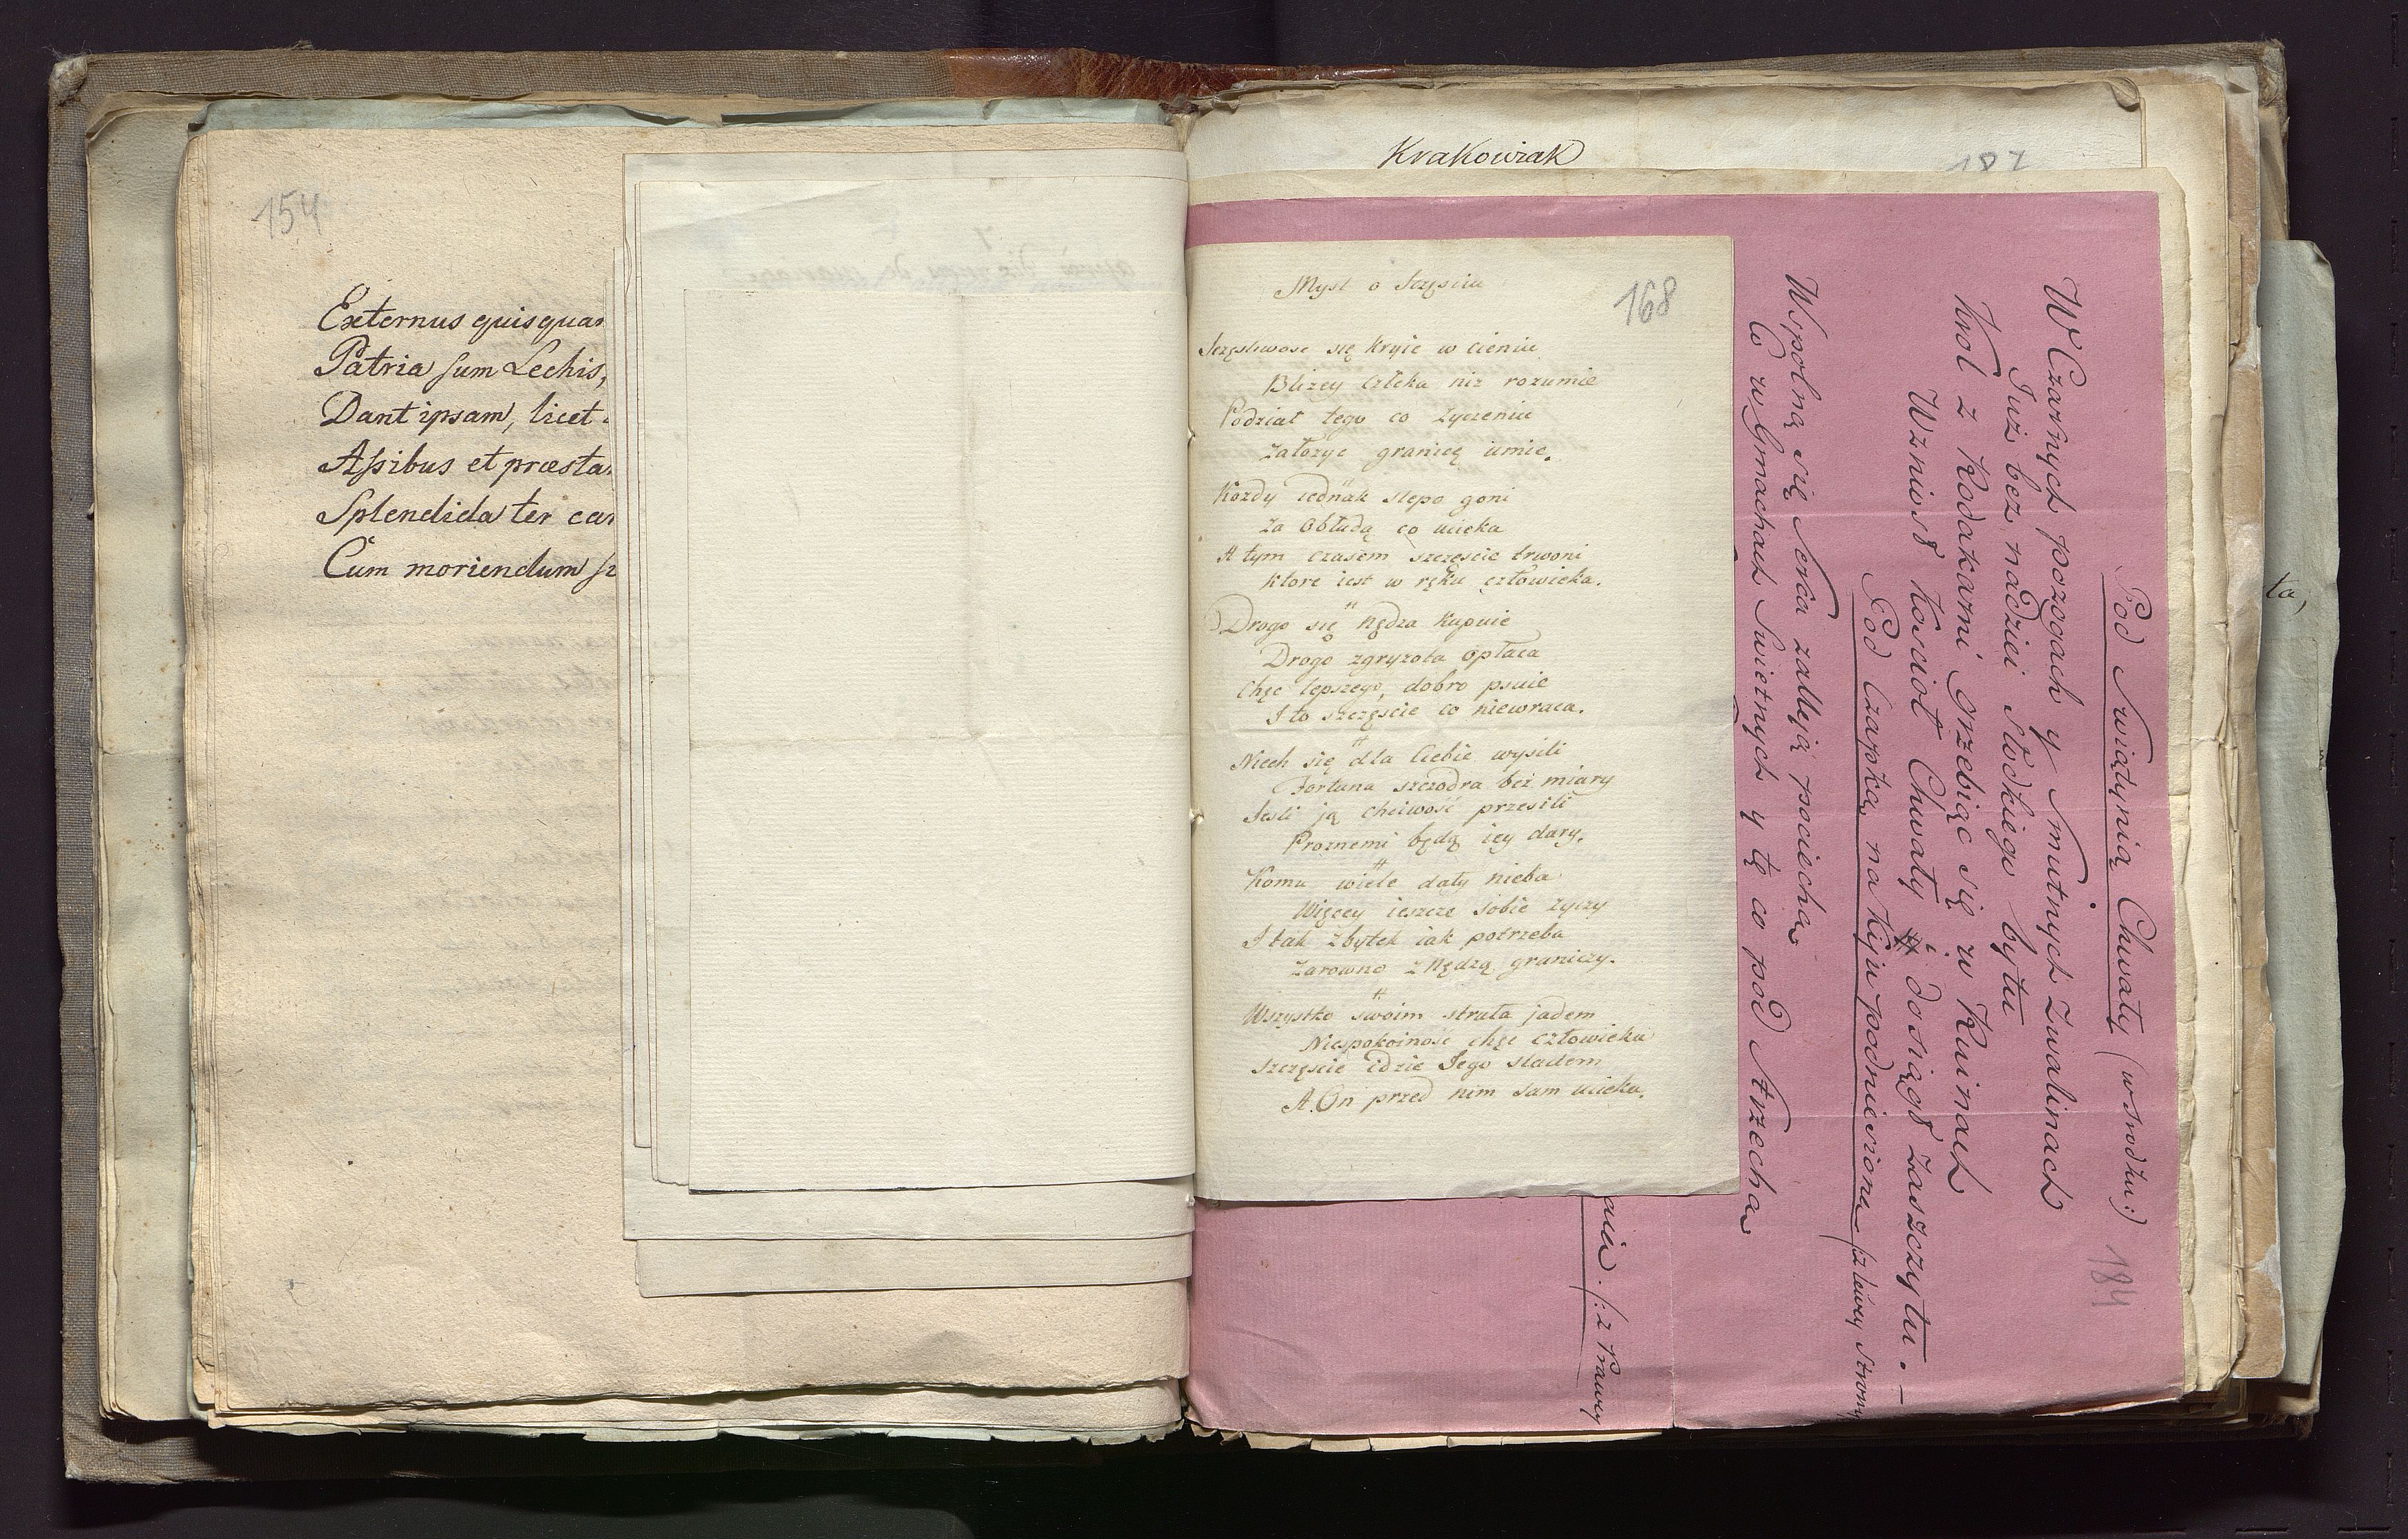 154
Externus quisquam
Patria sum Lechis,
Dant ipsam, licet
Assibus et præsta
Splendida ter car
Cum moriendum si
Krakowiak
187
168
Mysl o Szęsciu
Szęsliwosc się kryie w cieniu
Blizey człeka niz rozumie
Podział tego co życzeniu
założyc granicę umie.
Kozdy iednak slepo goni
za obłudą co ucieka
A tym czasem szczęscie trwoni
ktore iest w ręku człowieka.
#
Drogo się nędza kupuie
Drogo zgryzota opłaca
Chęc lepszego, dobro psuie
I to szczęscie co niewraca.
#
Niech się dla Ciebie wysili
Fortuna szczodra bez miary
Iesli ją chciwosc przesili
Proznemi będą iey dary.
#
Komu wiele dały nieba
Więcey ieszcze sobie zyczy
I tak zbytek iak potrzeba
Zarowno z Nędzą graniczy.
#
Wszystko swoim struła jadem
Niespokoinosc chęc człowieka
szczęscie idzie Iego sladem
A On przed nim sam ucieka.
Pod Swiątynią Chwały (w srodku:)
184
W Czarnych pozogach y smutnych zwalinach
Iuż bez nadziei słodkiego bytu
Krol z Rodakami grzebiąc się w Ruinach
Wzniosł Kosciol Chwały i dosiągł zaszczytu. –
Pod Czapką na kiju podniesioną /: z lewey strony
Wspolną się serca zalleją pociechą
Co w Gmachach swietnych y tę co pod strzechą
aiu. /: z Prawey
ta,